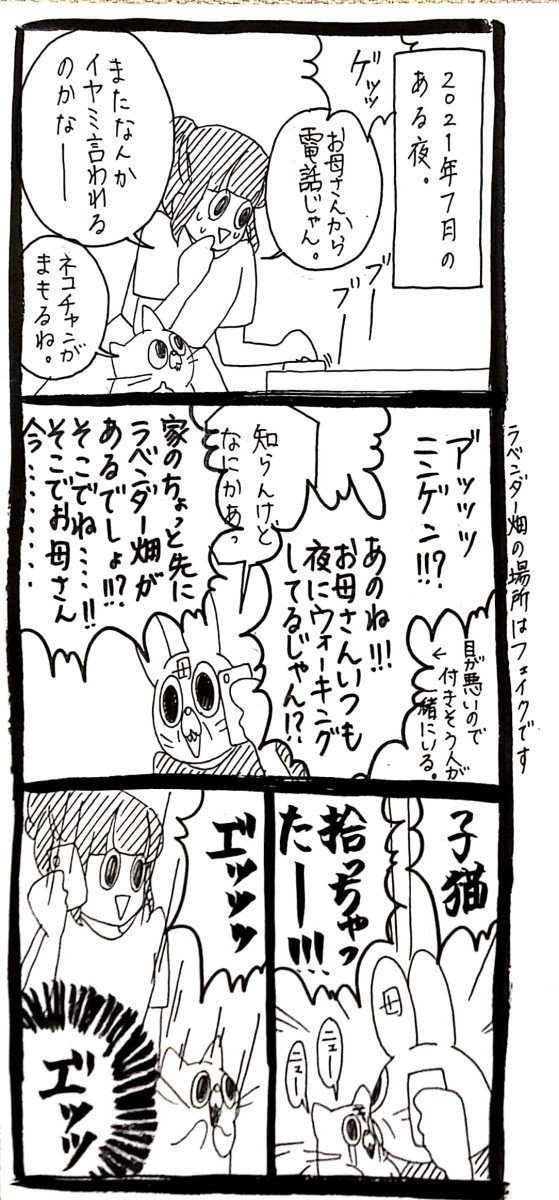 2021年7月の
ある夜。
ゲッッ
お母さんから
電話じゃん。
ブーー
ブーー
またなんか
イヤミ言われる
のかなーー
ネコチャンが
まもるね。
ラベンダー畑の場所はフェイクです
アッッッ
ニンゲン!!?
目が悪いので
付きそう人が
一緒にいる。
←
あのね!!!
お母さんいつも
夜にウォーキング
してるじゃん!?
知らんけど
なにかあっ
家のちょっと先に
ラベンダー畑が
あるでしょ!!?
そこでね…!!
そこでお母さん
今………
子猫
拾っちゃっ
たー!!!
母
ニュー
ニュー
エッッッ
エッッ